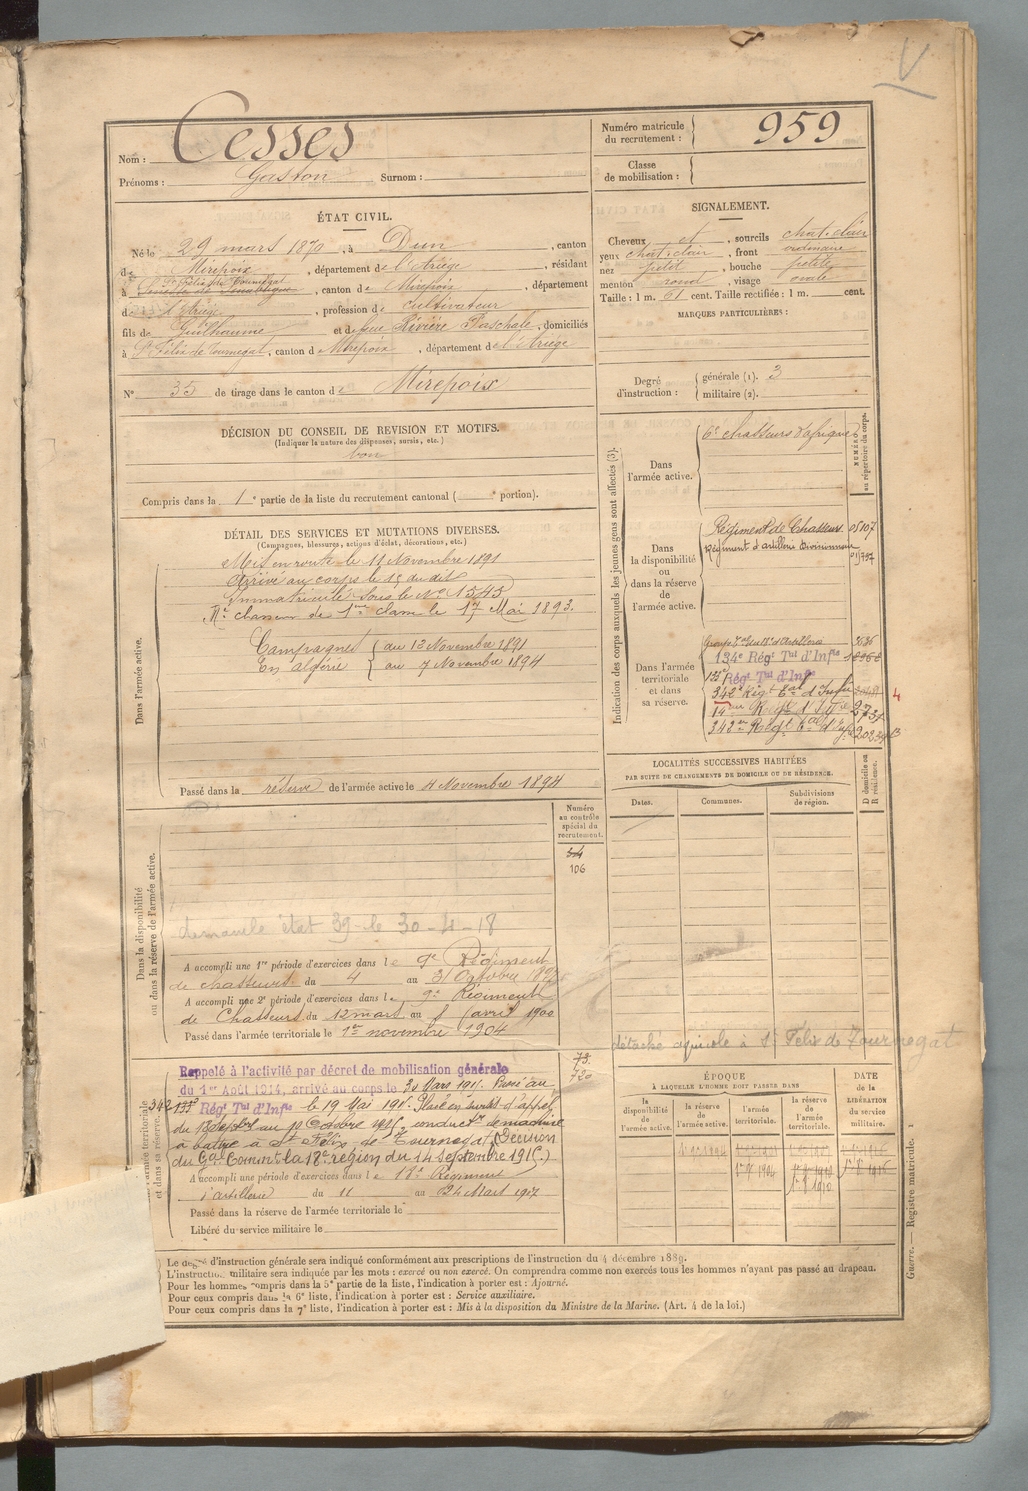 Nom : Cesses
Prénoms : Gaston Surnom :
Numéro matricule du recrutement : 959
Classe de mobilisation :
ÉTAT CIVIL.
Né le 29 mars 1870, à Dun, canton
de Mirepoix, département de l'Ariège, résidant
St Félix de Tournegat
à, canton de Mirepoix, département
de l'Ariège, profession de cultivateur
fils de Guilhaume et de feue Rivière Paschale, domiciliés
à St Félix de Tournegat, canton de Mirepoix, département de l'Ariège
N° 35 de tirage dans le canton de Mirepoix
SIGNALEMENT.
Cheveux et, sourcils chat. clair
yeux chat. clair, front ordinaire
nez petit, bouche petite
menton rond, visage ovale
Taille : 1 m. 61 cent. Taille rectifiée : 1 m. cent.
MARQUES PARTICULIÈRES :
Degré d'instruction : générale (1). 3
militaire (2).
DÉCISION DU CONSEIL DE REVISION ET MOTIFS.
(Indiquer la nature des dispenses, sursis, etc.)
bon
Compris dans la 1e partie de la liste du recrutement cantonal ( portion).
DÉTAIL DES SERVICES ET MUTATIONS DIVERSES.
(Campagnes, blessures, actions d'éclat, décorations, etc.)
Dans l'armée active.
Mis en route le 11 Novembre 1891
Arrivé au corps le 15 du dit
Immatriculé sous le No 1545
Me chasseur de 1ère classe le 17 Mai 1893.
Campagnes au 13 Novembre 1891
En Algérie au 7 Novembre 1894
Passé dans la réserve de l'armée active le 4 Novembre 1894
Indication des corps auxquels les jeunes gens sont affectés (3).
NUMÉRO au répertoire du corps.
Dans l'armée active.
6e chasseurs d'afrique
Dans la disponibilité ou dans la réserve de l'armée active.
Régiment de Chasseurs 05107
Régiment d'artillerie divisionnaire
Dans l'armée territoriale et dans sa réserve.
134e Régt Tal d'Infie
Régt Tal d'Infie
342e Régt Tal d'Infie
4
342e Régt Tal d'Inf
LOCALITÉS SUCCESSIVES HABITÉES
PAR SUITE DE CHANGEMENTS DE DOMICILE OU DE RÉSIDENCE.
Dates.
Communes.
Subdivisions de région.
D domicile ou R résidence.
Numéro au contrôle spécial du recrutement.
106
Dans la disponibilité ou dans la réserve de l'armée active.
demande état 39 le 30-4-18
A accompli une 1re période d'exercices dans le 9e Régiment
de chasseurs du 4 au 31 Octobre
A accompli une 2e période d'exercices dans le 9e Régiment
de Chasseurs du 12 mars au 8 avril 1900
Passé dans l'armée territoriale le 1er novembre 1904
détaché agricole à St Félix de Tournegat
73.
720
Rappelé à l'activité par décret de mobilisation générale
du 1er Août 1914, arrivé au corps le 30 Mars 1915. Passé au
342 Régt Tal d'Infie le 19 Mai 1915. Placé en sursis d'appel
du 13 Septbre au 1er Octobre 1915 conductr de machine
à battre à St Félix de Tournegat (Décision
du Gal Commt la 18e région du 14 Septembre 1915.)
A accompli une période d'exercices dans le 18e Régiment
d'artillerie du 11 au 24 Mars 1907
Passé dans la réserve de l'armée territoriale le
Libéré du service militaire le
territoriale et dans sa réserve.
ÉPOQUE
À LAQUELLE L'HOMME DOIT PASSER DANS
la disponibilité de l'armée active.
la réserve de l'armée active.
l'armée territoriale.
la réserve de l'armée territoriale.
DATE de la LIBÉRATION du service militaire.
Le degré d'instruction générale sera indiqué conformément aux prescriptions de l'instruction du 4 décembre 1889.
L'instruction militaire sera indiquée par les mots : exercé ou non exercé. On comprendra comme non exercés tous les hommes n'ayant pas passé au drapeau.
Pour les hommes compris dans la 5e partie de la liste, l'indication à porter est : Ajourné.
Pour ceux compris dans la 6e liste, l'indication à porter est : Service auxiliaire.
Pour ceux compris dans la 7e liste, l'indication à porter est : Mis à la disposition du Ministre de la Marine. (Art. 4 de la loi.)
Guerre. — Registre matricule. 1